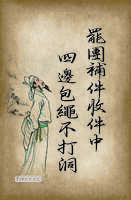 罷團補件收件中
四邊包繩不打洞